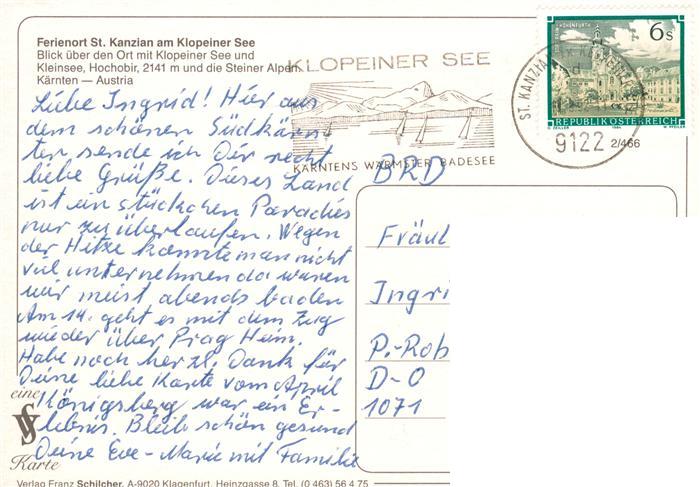 Ferienort St. Kanzian am Klopeiner See
Blick über den Ort mit Klopeiner See und
Kleinsee, Hochobir, 2141 m und die Steiner Alpen.
Kärnten — Austria
Liebe Ingrid! Hier aus
dem schönen Südkärn-
ten sende ich Dir recht
liebe Grüße. Dieses Land
ist ein stückchen Paradies
nur zu überlaufen. Wegen
der Hitze konnte man nicht
viel unternehmen da waren
wir meist abends baden
Am 14. geht es mit dem Zug
wieder über Prag Heim.
Habe noch herzl. Dank für
Deine liebe Karte vom April
Königsberg war ein Er-
lebnis. Bleib schön gesund
Deine Eve-Marie mit Familie
eine
Karte
Verlag Franz Schilcher, A-9020 Klagenfurt, Heinzgasse 8, Tel. (0 463) 56 4 75
KLOPEINER SEE
KÄRNTENS WÄRMSTER BADESEE
ST. KANZIAN
9122
6 S
REPUBLIK ÖSTERREICH
G. ZEILER 1984 W. PFEILER
2/466
BRD
Fräul
Ingri
P.-Rob
D-O
1071